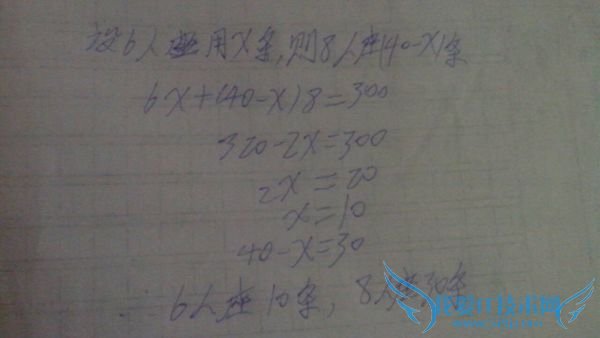 设6人坐用X条,则8人坐(40-X)条
6X+(40-X)8=300
320-2X=300
2X=20
X=10
40-X=30
∴6人坐10条,8人坐30条